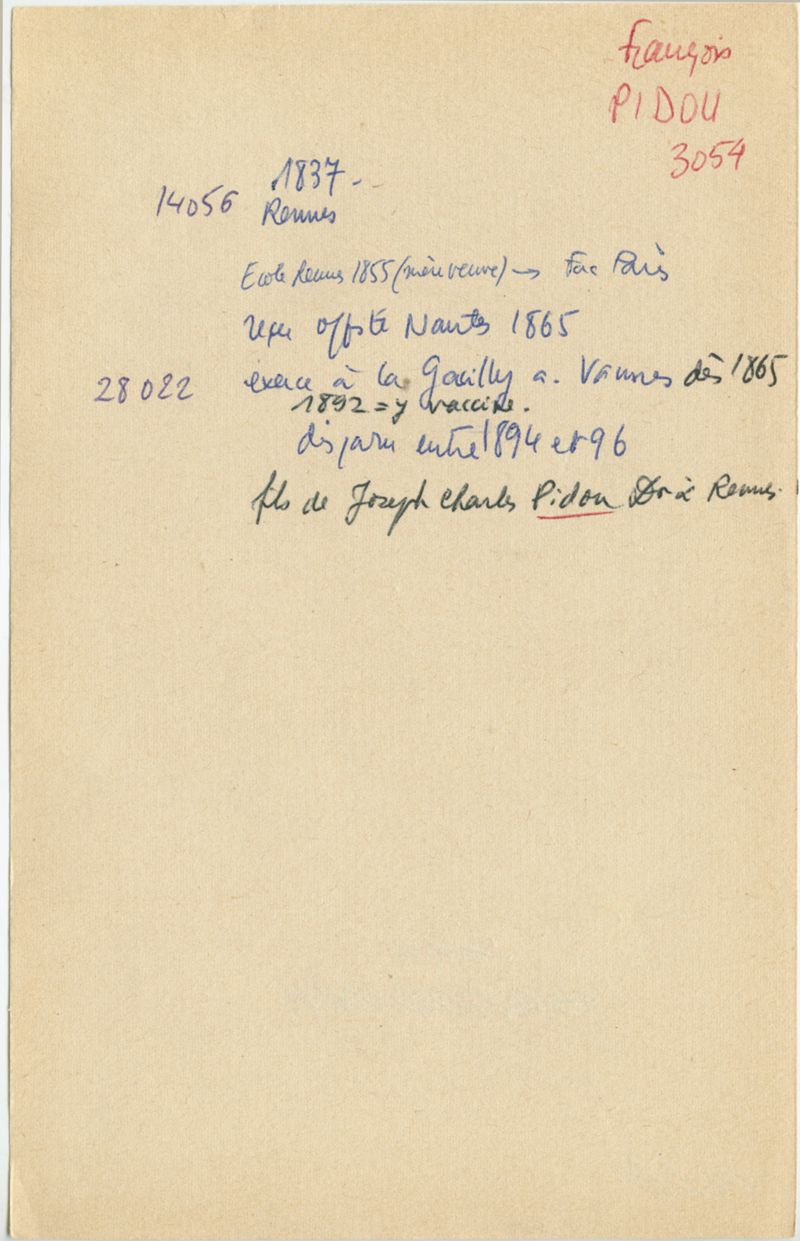 François
PIDOU
3054
1837 -
14056 Rennes
Ecole Rennes 1855 (mère veuve) → Fac Paris
reçu offste Nantes 1865
28022 exerce à la Gacilly a. Vannes dès 1865
1892 = y vaccine.
disparu entre 1894 et 96
fils de Joseph Charles Pidou Dr à Rennes.